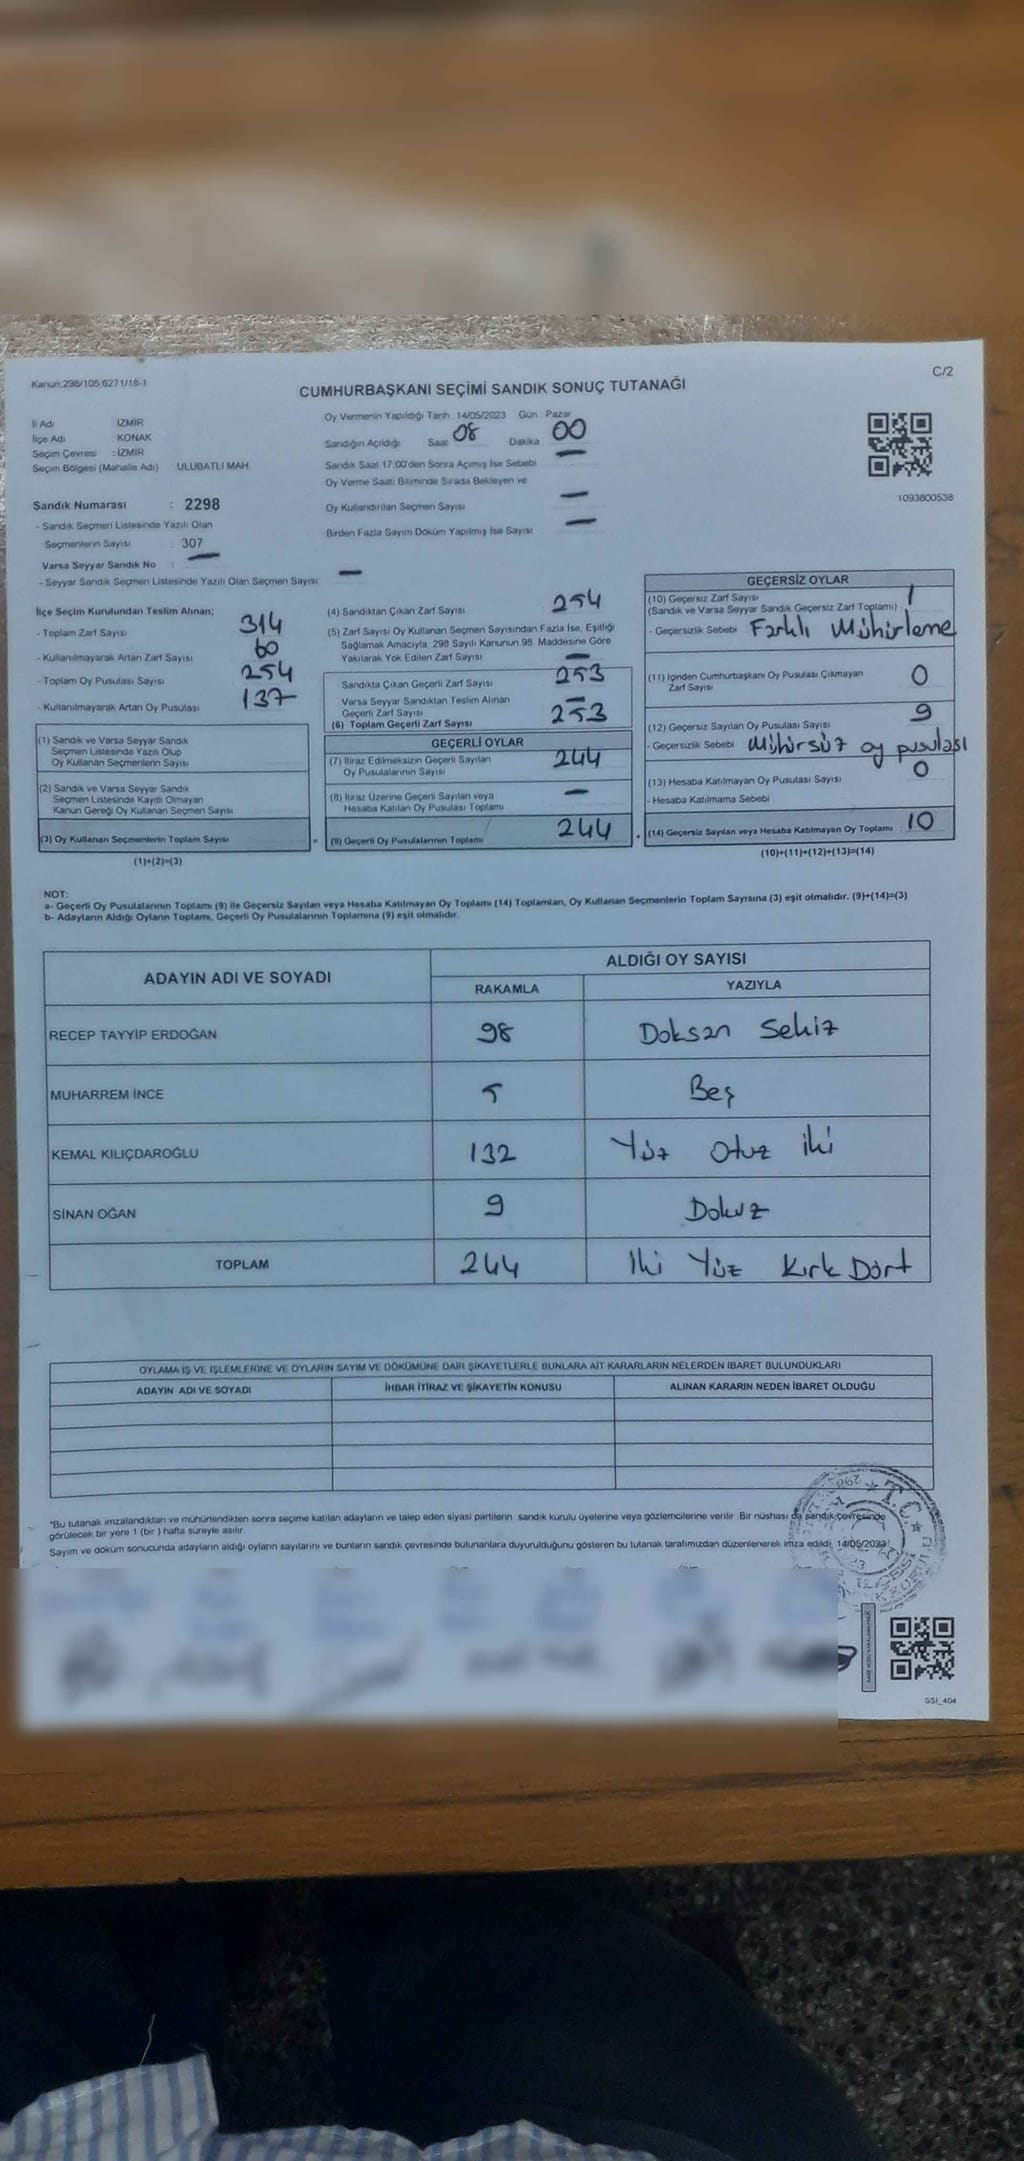 Kanun:298/105,6271/18-1
C/2
CUMHURBAŞKANI SEÇİMİ SANDIK SONUÇ TUTANAĞI
İl Adı İZMİR
İlçe Adı KONAK
Seçim Çevresi : İZMİR
Seçim Bölgesi (Mahalle Adı) ULUBATLI MAH.
Oy Vermenin Yapıldığı Tarih 14/05/2023 Gün : Pazar
Sandığın Açıldığı Saat 08 Dakika 00
Sandık Saat 17:00'den Sonra Açılmış İse Sebebi —
Oy Verme Saati Bitiminde Sırada Bekleyen ve
Oy Kullandırılan Seçmen Sayısı —
Birden Fazla Sayım Döküm Yapılmış İse Sayısı —
1093800538
Sandık Numarası : 2298
- Sandık Seçmen Listesinde Yazılı Olan
Seçmenlerin Sayısı : 307
Varsa Seyyar Sandık No : —
- Seyyar Sandık Seçmen Listesinde Yazılı Olan Seçmen Sayısı —
İlçe Seçim Kurulundan Teslim Alınan;
- Toplam Zarf Sayısı 314
- Kullanılmayarak Artan Zarf Sayısı 60
- Toplam Oy Pusulası Sayısı 254
- Kullanılmayarak Artan Oy Pusulası 137
(1) Sandık ve Varsa Seyyar Sandık
Seçmen Listesinde Yazılı Olup
Oy Kullanan Seçmenlerin Sayısı
(2) Sandık ve Varsa Seyyar Sandık
Seçmen Listesinde Kaydı Olmayan
Kanun Gereği Oy Kullanan Seçmen Sayısı
(3) Oy Kullanan Seçmenlerin Toplam Sayısı
(1)+(2)=(3)
(4) Sandıktan Çıkan Zarf Sayısı : 254
(5) Zarf Sayısı Oy Kullanan Seçmen Sayısından Fazla İse, Eşitliği
Sağlamak Amacıyla, 298 Sayılı Kanunun 98. Maddesine Göre
Yakılarak Yok Edilen Zarf Sayısı —
Sandıkta Çıkan Geçerli Zarf Sayısı 253
Varsa Seyyar Sandıktan Teslim Alınan
Geçerli Zarf Sayısı —
(6) Toplam Geçerli Zarf Sayısı 253
GEÇERLİ OYLAR
(7) İtiraz Edilmeksizin Geçerli Sayılan
Oy Pusulalarının Sayısı 244
(8) İtiraz Üzerine Geçerli Sayılan veya
Hesaba Katılan Oy Pusulası Toplamı —
(9) Geçerli Oy Pusulalarının Toplamı 244
GEÇERSİZ OYLAR
(10) Geçersiz Zarf Sayısı 1
(Sandık ve Varsa Seyyar Sandık Geçersiz Zarf Toplamı)
- Geçersizlik Sebebi Farklı Mühürleme
(11) İçinden Cumhurbaşkanı Oy Pusulası Çıkmayan
Zarf Sayısı 0
(12) Geçersiz Sayılan Oy Pusulası Sayısı 9
- Geçersizlik Sebebi Mühürsüz oy pusulası
(13) Hesaba Katılmayan Oy Pusulası Sayısı 0
- Hesaba Katılmama Sebebi
(14) Geçersiz Sayılan veya Hesaba Katılmayan Oy Toplamı : 10
(10)+(11)+(12)+(13)=(14)
NOT:
a- Geçerli Oy Pusulalarının Toplamı (9) ile Geçersiz Sayılan veya Hesaba Katılmayan Oy Toplamı (14) Toplamları, Oy Kullanan Seçmenlerin Toplam Sayısına (3) eşit olmalıdır. (9)+(14)=(3)
b- Adayların Aldığı Oyların Toplamı, Geçerli Oy Pusulalarının Toplamına (9) eşit olmalıdır.
ADAYIN ADI VE SOYADI
ALDIĞI OY SAYISI
RAKAMLA YAZIYLA
RECEP TAYYİP ERDOĞAN 98 Doksan Sekiz
MUHARREM İNCE 5 Beş
KEMAL KILIÇDAROĞLU 132 Yüz Otuz İki
SİNAN OĞAN 9 Dokuz
TOPLAM 244 İki Yüz Kırk Dört
OYLAMA İŞ VE İŞLEMLERİNE VE OYLARIN SAYIM VE DÖKÜMÜNE DAİR ŞİKAYETLERLE BUNLARA AİT KARARLARIN NELERDEN İBARET BULUNDUKLARI
ADAYIN ADI VE SOYADI İHBAR İTİRAZ VE ŞİKAYETİN KONUSU ALINAN KARARIN NEDEN İBARET OLDUĞU
"Bu tutanak imzalandıktan ve mühürlendikten sonra seçime katılan adayların ve talep eden siyasi partilerin sandık kurulu üyelerine veya gözlemcilerine verilir. Bir nüshası da sandık çevresinde
görülecek bir yere 1 (bir ) hafta süreyle asılır.
Sayım ve döküm sonucunda adayların aldığı oyların sayılarını ve bunların sandık çevresinde bulunanlara duyurulduğunu gösteren bu tutanak tarafımızdan düzenlenerek imza edildi. 14/05/2023
T.C.
SSI_404